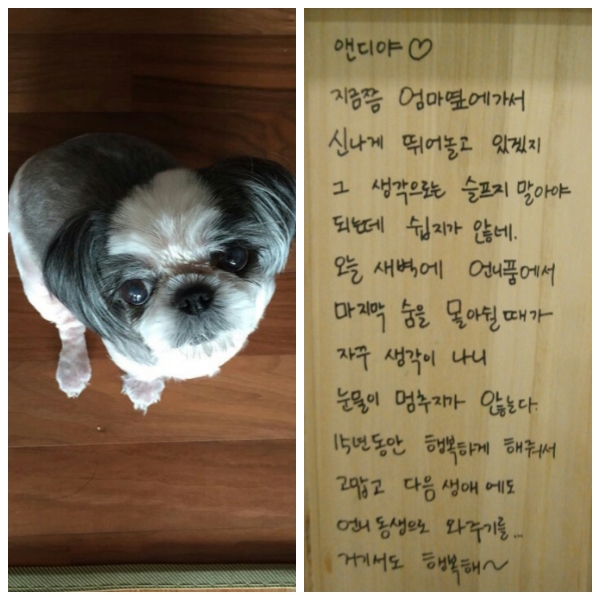 앤디야♡
지금쯤 엄마옆에가서
신나게 뛰어놀고 있겠지
그 생각으로는 슬프지 말아야
되는데 쉽지가 않네.
오늘 새벽에 언니품에서
마지막 숨을 몰아쉴때가
자꾸 생각이 나니
눈물이 멈추지가 않는다.
15년동안 행복하게 해줘서
고맙고 다음 생애에도
언니 동생으로 와주기를...
거기서도 행복해~